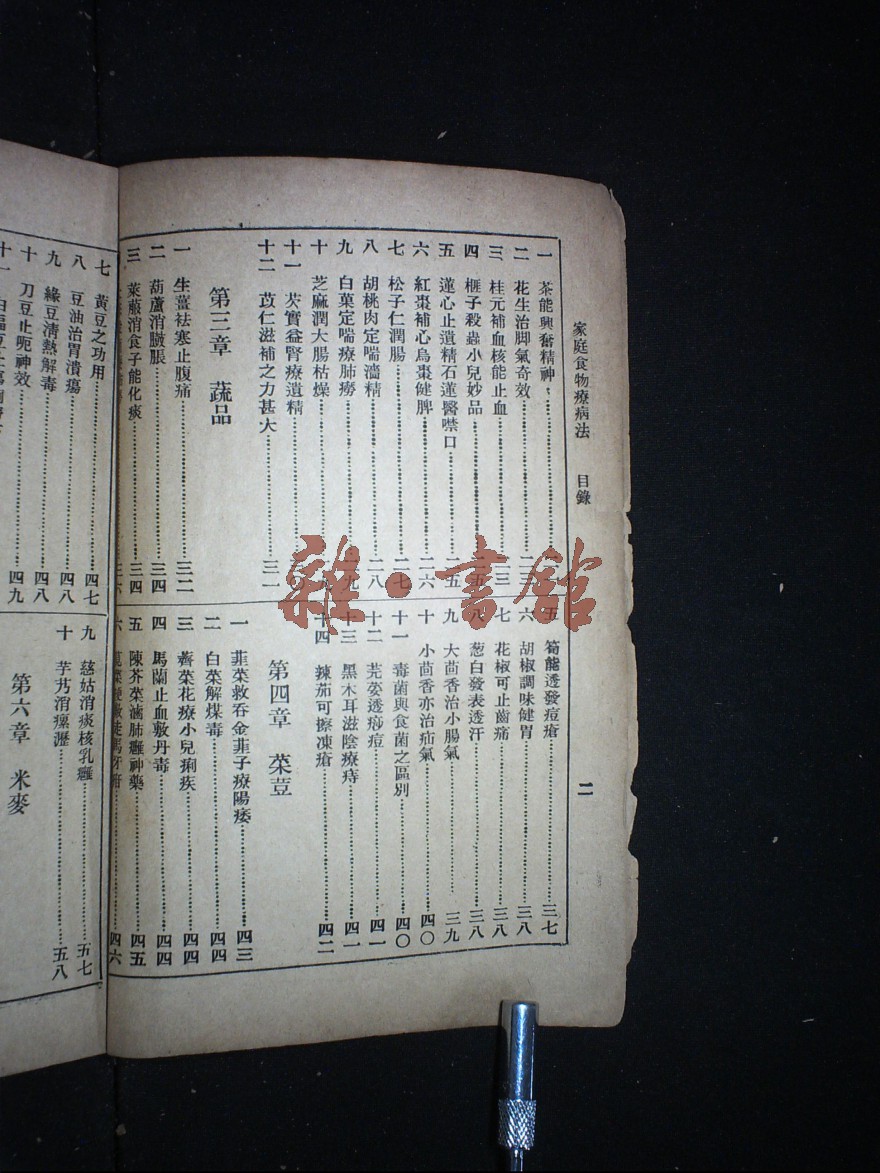 家庭食物療病法 目錄 二
一 茶能興奮精神
二 花生治脚氣奇效
三 桂元補血核能止血
四 榧子殺蟲小兒妙品
五 蓮心止遺精石蓮醫噤口 二五
六 紅棗補心烏棗健脾 二六
七 松子仁潤腸 二七
八 胡桃肉定喘濇精 二八
九 白菓定喘療肺癆
十 芝麻潤大腸枯燥
十一 芡實益腎療遺精
十二 苡仁滋補之力甚大 三一
第三章 蔬品
一 生薑袪寒止腹痛 三二
二 葫蘆消臌脹 三四
三 萊菔消食子能化痰 三四
五 筍能透發痘瘡 三七
六 胡椒調味健胃 三八
七 花椒可止齒痛 三八
八 葱白發表透汗 三八
九 大茴香治小腸氣 三九
十 小茴香亦治疝氣 四〇
十一 毒菌與食菌之區別 四〇
十二 芫荽透痧痘 四一
十三 黑木耳滋陰療痔 四一
十四 辣茄可擦凍瘡 四二
第四章 菜荳
一 韮菜救吞金韮子療陽痿 四三
二 白菜解煤毒 四四
三 薺菜花療小兒痢疾 四四
四 馬蘭止血敷丹毒 四四
五 陳芥菜滷肺癰神藥 四五
六 四六
七 黃豆之功用 四七
八 豆油治胃潰瘍 四八
九 綠豆清熱解毒 四八
十 刀豆止呃神效 四九
十一
九 慈姑消痰核乳癰 五七
十 芋艿消瘰瀝 五八
第六章 米麥
雜·書館